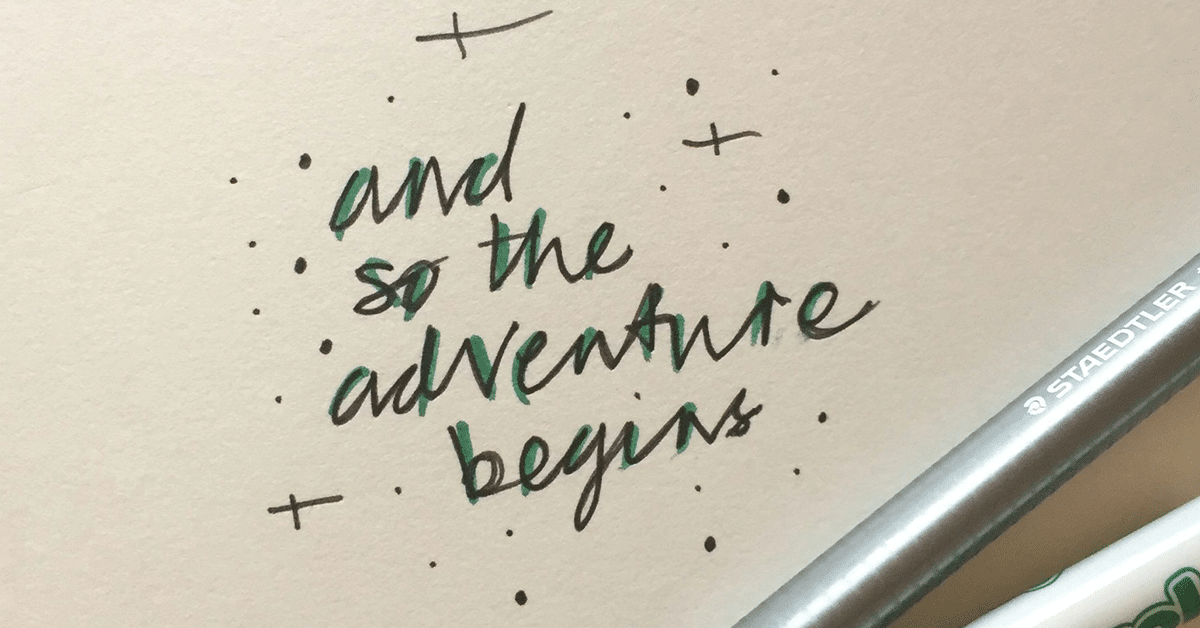 and
so the
adventure
begins
STAEDTLER